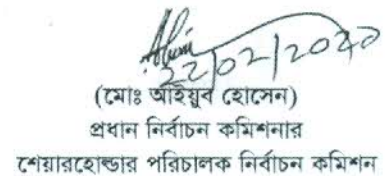 22/02/2020
(মোঃ আইয়ুব হোসেন)
প্রধান নির্বাচন কমিশনার
শেয়ারহোল্ডার পরিচালক নির্বাচন কমিশন